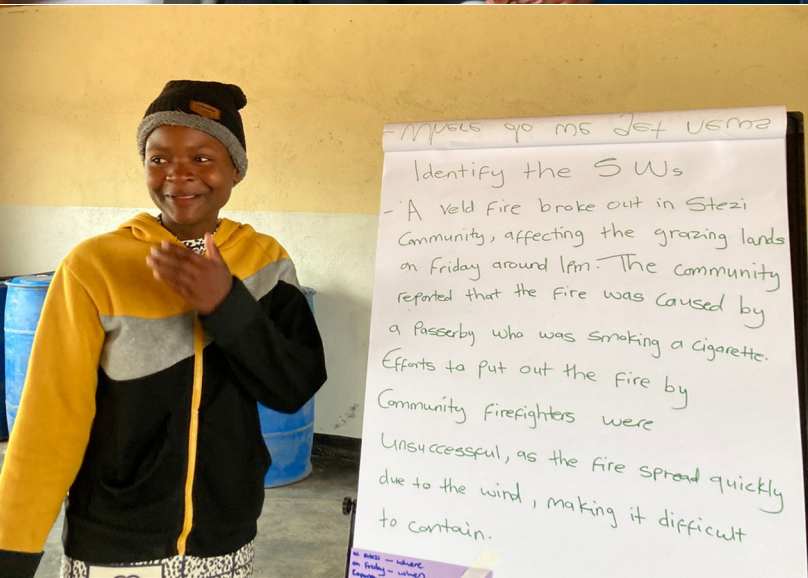 Identify the 5 Ws
- A veld fire broke out in Stezi
Community, affecting the grazing lands
on Friday around 1pm. The community
reported that the fire was caused by
a Passerby who was smoking a cigarette.
Efforts to put out the fire by
Community firefighters were
Unsuccessful, as the fire spread quickly
due to the wind, making it difficult
to contain.
at Stezi - where
on friday - when